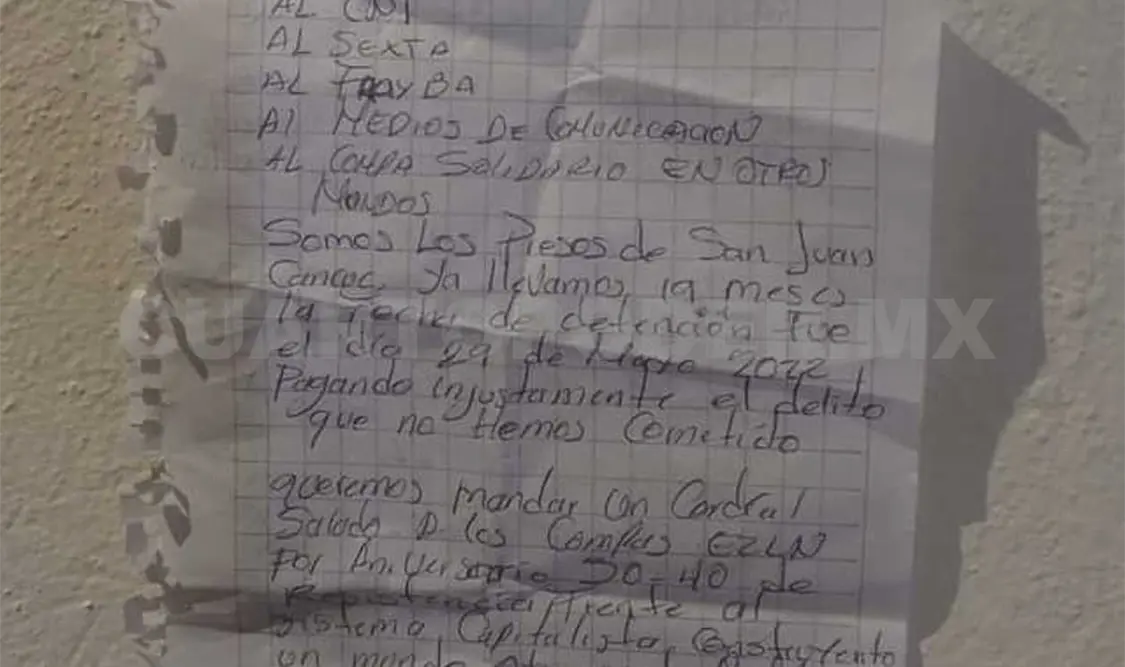 AL CNI
AL SEXTA
AL FRAYBA
Al MEDIOS DE COMUNICACION
AL COMPA SOLIDARIO EN OTROS
MONDOS
Somos Los Presos de San Juan
Cancuc, Ya llevamos 19 meses
la fecha de detención fue
el día 29 de Mayo 2022
Pagando injustamente el delito
que no Hemos Cometido
queremos mandar un Cordial
Saludo A los Compas EZLN
Por Aniversario 30-40 de
Resistencia frente al
Sistema Capitalista,
un mundo